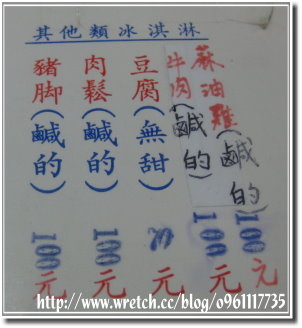 其他類冰淇淋
麻油雞(鹹的)100元
牛肉(鹹的)100元
豆腐(無甜)元
肉鬆(鹹的)100元
豬脚(鹹的)100元
http://www.wretch.cc/blog/o961117735